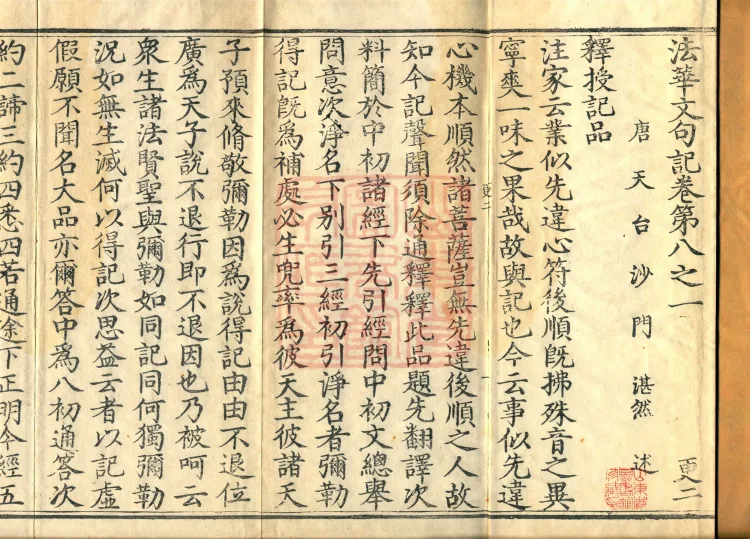 法華文句記卷第八之一 更二
唐天台沙門湛然述
釋授記品
注家云業似先違心符後順旣拂殊音之異
寧爽一味之果哉故與記也今云事似先違
心機本順然諸菩薩豈無先違後順之人故
知今記聲聞須除通釋釋此品題先翻譯次
料簡於中初諸經下先引經問中初文總舉
問意次淨名下別引三經初引淨名者彌勒
得記旣為補處必生兜率為彼天主彼諸天
子預來脩敬彌勒因為說得記由由不退位
廣為天子說不退行即不退因也乃被呵云
衆生諸法賢聖與彌勒如同記同何獨彌勒
況如無生滅何以得記次思益云者以記虛
假願不聞名大品亦爾答中為八初通答次
約二諦三約四悉四若通途下正明今經五
更二